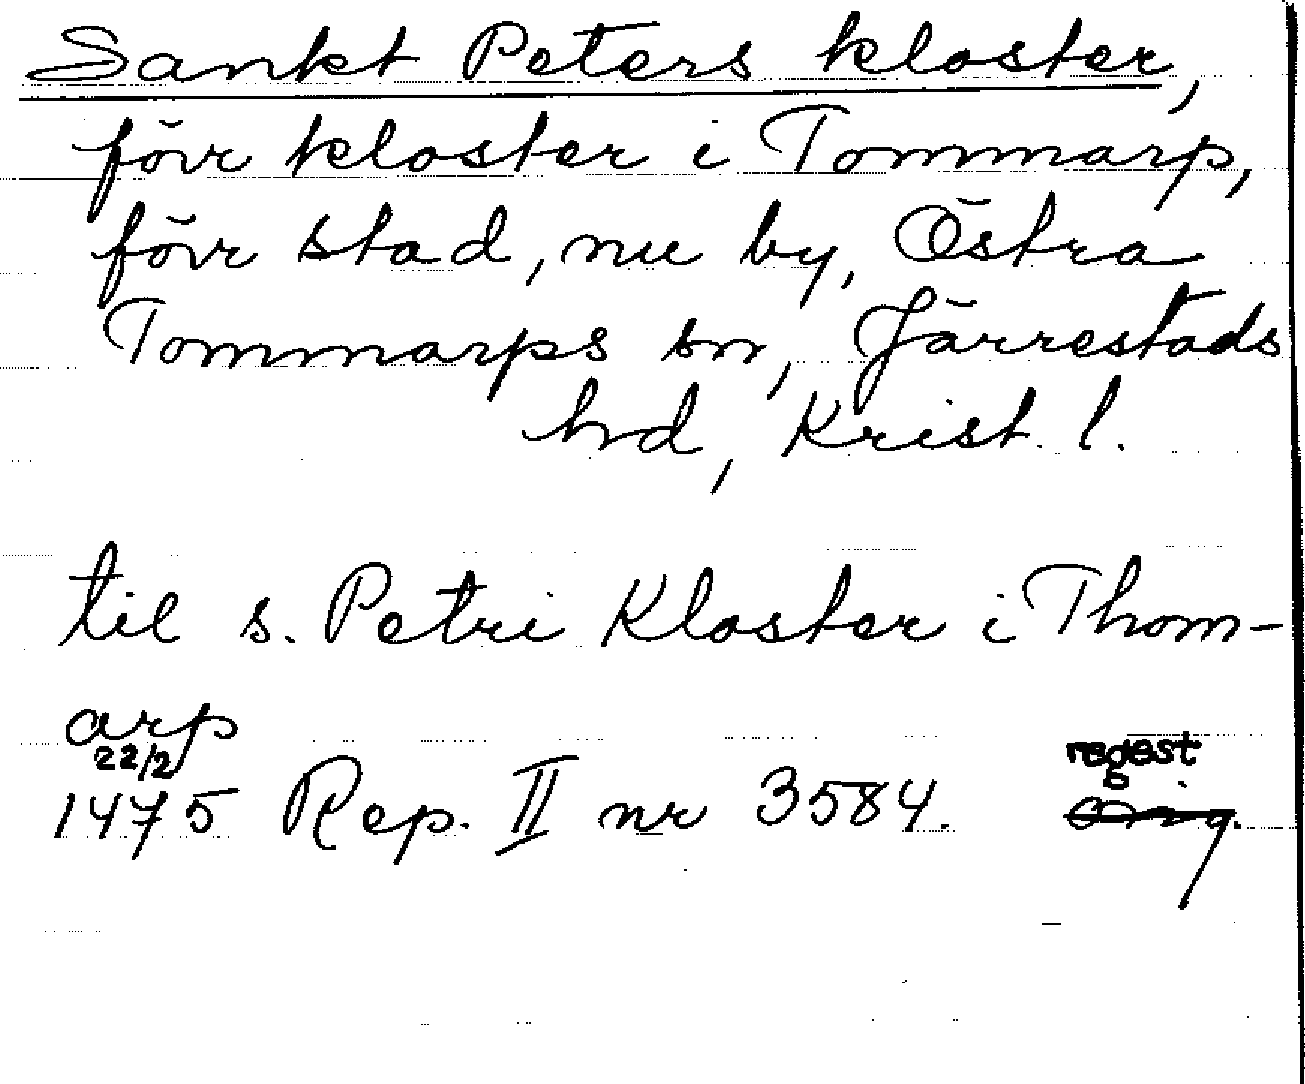 Sankt Peters kloster,
förr kloster i Tommarp,
förr stad, nu by, Östra
Tommarps sn, Järrestads
hd, Krist. l.
til s. Petri Kloster i Thom-
arp
22/2 regest
1475 Rep. II nr 3584. Orig.